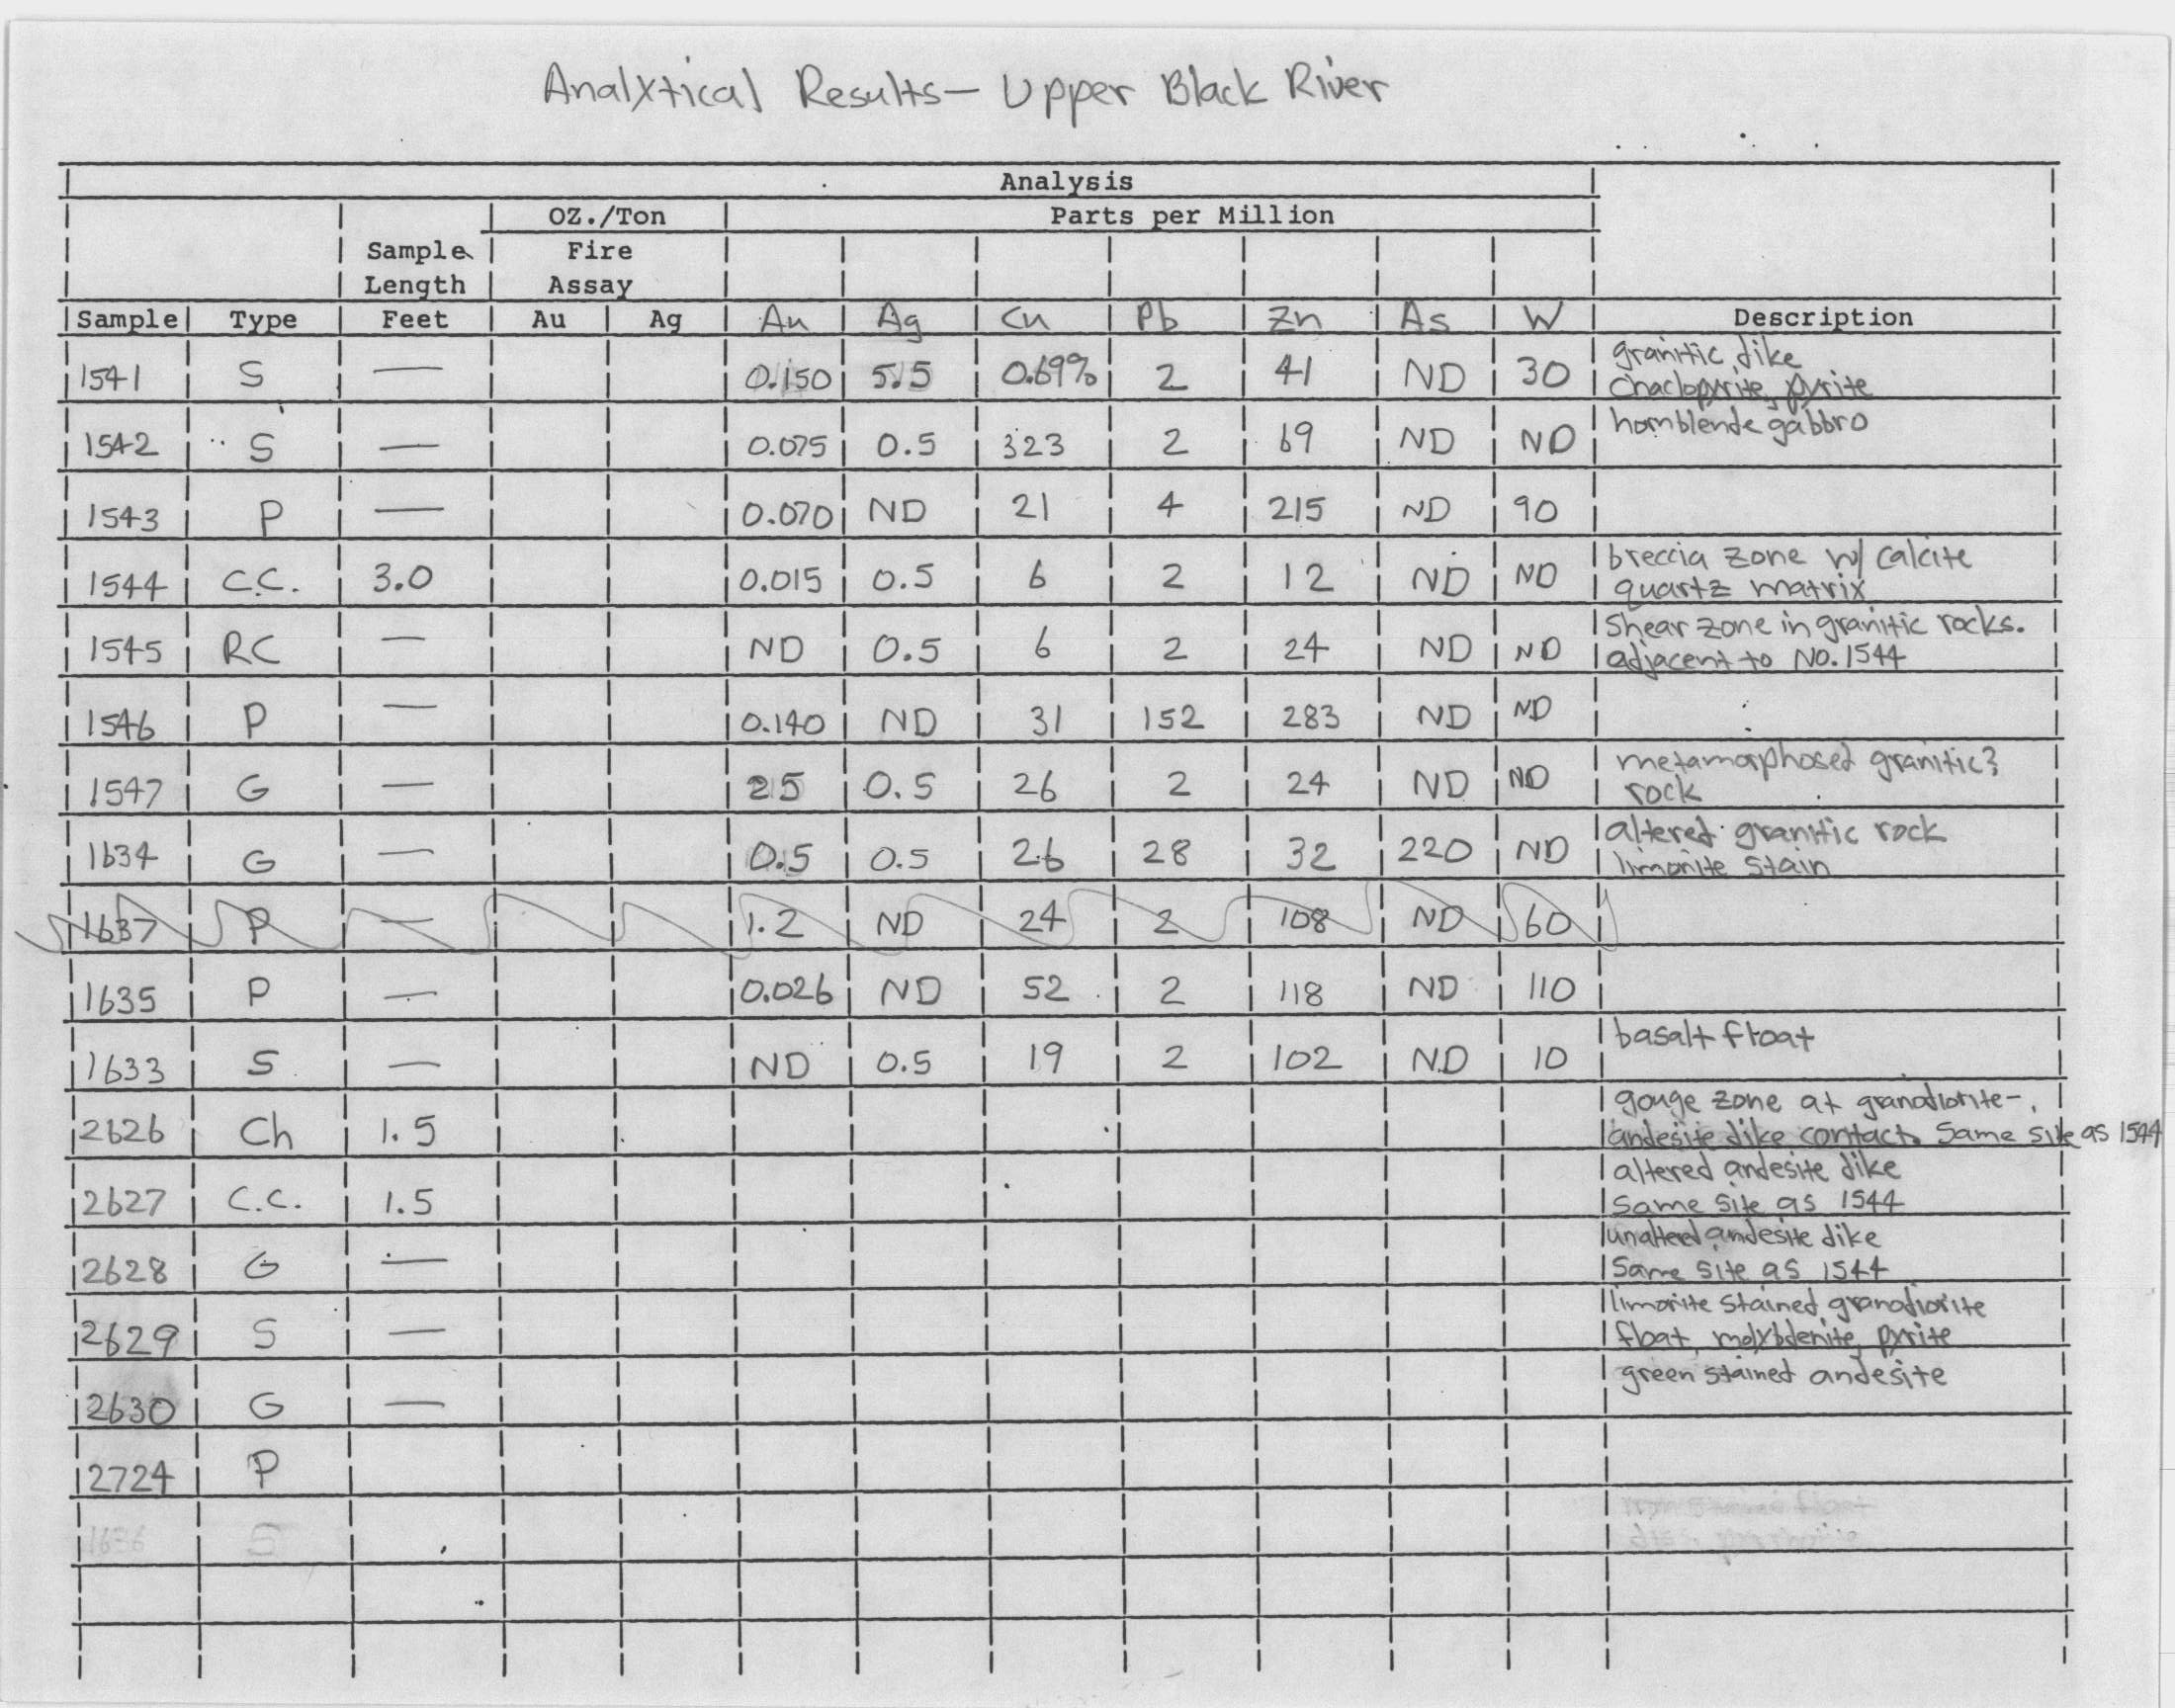 Analytical Results- Upper Black River
Analysis
OZ./Ton Parts per Million
Sample Fire
Length Assay
Sample Type Feet Au Ag Au Ag Cu Pb Zn As W Description
granitic dike
1541 S — 0.150 5.5 0.69% 2 41 ND 30 chaclopyrite, pyrite
1542 S — 0.075 0.5 323 2 69 ND ND hornblende gabbro
1543 P — 0.070 ND 21 4 215 ND 90
breccia zone w/ calcite
1544 C.C. 3.0 0.015 0.5 6 2 12 ND ND quartz matrix
shear zone in granitic rocks.
1545 RC — ND 0.5 6 2 24 ND ND adjacent to No. 1544
1546 P — 0.140 ND 31 152 283 ND ND
metamorphosed granitic?
1547 G — 25 0.5 26 2 24 ND ND rock
altered granitic rock
1634 G — 0.5 0.5 26 28 32 220 ND limonite stain
1637 P — 1.2 ND 24 2 108 ND 60
1635 P — 0.026 ND 52 2 118 ND 110
basalt float
1633 S — ND 0.5 19 2 102 ND 10
gouge zone at granodiorite-
2626 Ch 1.5 andesite dike contact. Same site as 1544
altered andesite dike
2627 C.C. 1.5 same site as 1544
unaltered andesite dike
2628 G — Same site as 1544
limonite stained granodiorite
2629 S — float, molybdenite, pyrite
green stained andesite
2630 G —
2724 P
1636 S